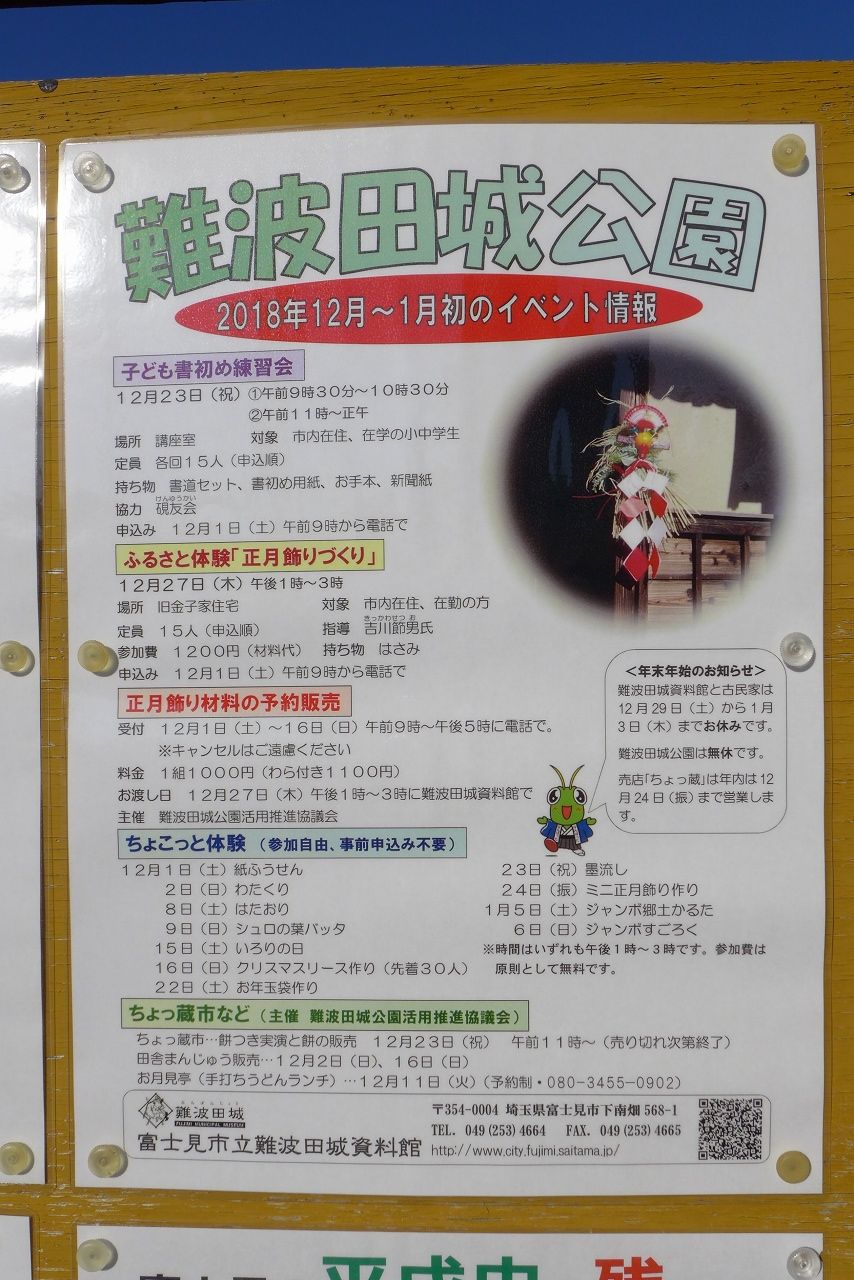 難波田城公園
2018年12月～1月初のイベント情報
子ども書初め練習会
12月23日（祝）①午前9時30分～10時30分
②午前11時～正午
場所　講座室　　対象　市内在住、在学の小中学生
定員　各回15人（申込順）
持ち物　書道セット、書初め用紙、お手本、新聞紙
けんゆうかい
協力　硯友会
申込み　12月1日（土）午前9時から電話で
ふるさと体験「正月飾りづくり」
12月27日（木）午後1時～3時
場所　旧金子家住宅　　対象　市内在住、在勤の方
きっかわせつ お
定員　15人（申込順）　　指導　吉川節男氏
参加費　1200円（材料代）　持ち物　はさみ
申込み　12月1日（土）午前9時から電話で
正月飾り材料の予約販売
受付　12月1日（土）～16日（日）午前9時～午後5時に電話で。
※キャンセルはご遠慮ください
料金　1組1000円（わら付き1100円）
お渡し日　12月27日（木）午後1時～3時に難波田城資料館で
主催　難波田城公園活用推進協議会
＜年末年始のお知らせ＞
難波田城資料館と古民家は
12月29日（土）から1月
3日（木）までお休みです。
難波田城公園は無休です。
売店「ちょっ蔵」は年内は12
月24日（振）まで営業しま
す。
ちょこっと体験　（参加自由、事前申込み不要）
12月1日（土）紙ふうせん
2日（日）わたくり
8日（土）はたおり
9日（日）シュロの葉バッタ
15日（土）いろりの日
16日（日）クリスマスリース作り（先着30人）
22日（土）お年玉袋作り
23日（祝）墨流し
24日（振）ミニ正月飾り作り
1月5日（土）ジャンボ郷土かるた
6日（日）ジャンボすごろく
※時間はいずれも午後1時～3時です。参加費は
原則として無料です。
ちょっ蔵市など（主催　難波田城公園活用推進協議会）
ちょっ蔵市…餅つき実演と餅の販売　12月23日（祝）　午前11時～（売り切れ次第終了）
田舎まんじゅう販売…12月2日（日）、16日（日）
お月見亭（手打ちうどんランチ）…12月11日（火）（予約制・080-3455-0902）
難波田城
FUJIMI MUNICIPAL MUSEUM
富士見市立難波田城資料館
〒354-0004 埼玉県富士見市下南畑568-1
TEL. 049(253)4664　FAX. 049(253)4665
http://www.city.fujimi.saitama.jp/